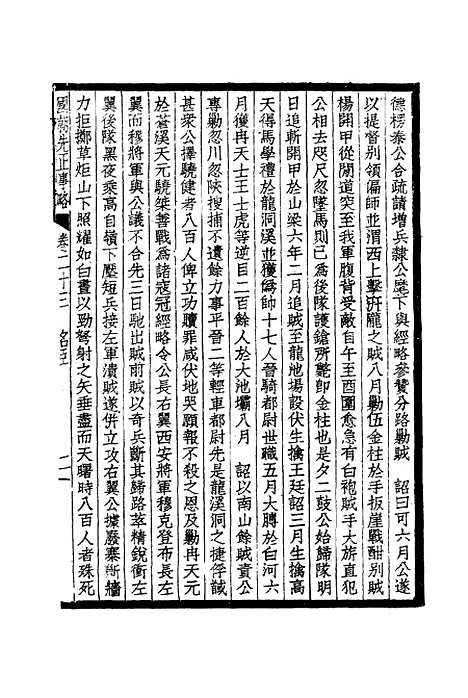 德楞泰公合疏請增兵隸公麾下與經略參贊分路勦賊　詔曰可六月公遂
以提督別領偏師並渭西上擊汧隴之賊八月勦伍金柱於手扳崖戰酣別賊
楊開甲從間道突至我軍腹背受敵自午至酉圍愈急有白袍賊手大旂直犯
公相去咫尺忽墜馬則已為後隊護鎗所斃即金柱也是夕二鼓公始歸隊明
日追斬開甲於山梁六年二月追賊至龍池場設伏生擒王廷詔三月生擒高
天得馬學禮於龍洞溪並獲偽帥十七人晉騎都尉世職五月大勝於白河六
月獲冉天士王士虎等逆目二百餘人於大池壩八月　詔以南山餘賊責公
專勦忽川忽陝搜捕不遺餘力事平晉二等輕車都尉先是龍溪洞之捷俘馘
甚衆公擇驍健者八百人俾立功贖罪咸伏地哭願報不殺之恩及勦冉天元
於蒼溪天元驍桀善戰為諸寇冠經略令公長右翼西安將軍穆克登布長左
翼而穆將軍與公議不合先三日馳出賊前賊以奇兵斷其歸路萃精銳衝左
翼後隊黑夜乘高自嶺下壓短兵接左軍潰賊遂併立攻右翼公據廢寨斷牆
力拒擲草炬山下照耀如白晝以勁弩射之矢垂盡而天曙時八百人者殊死
國朝先正事略　卷二十三　名臣